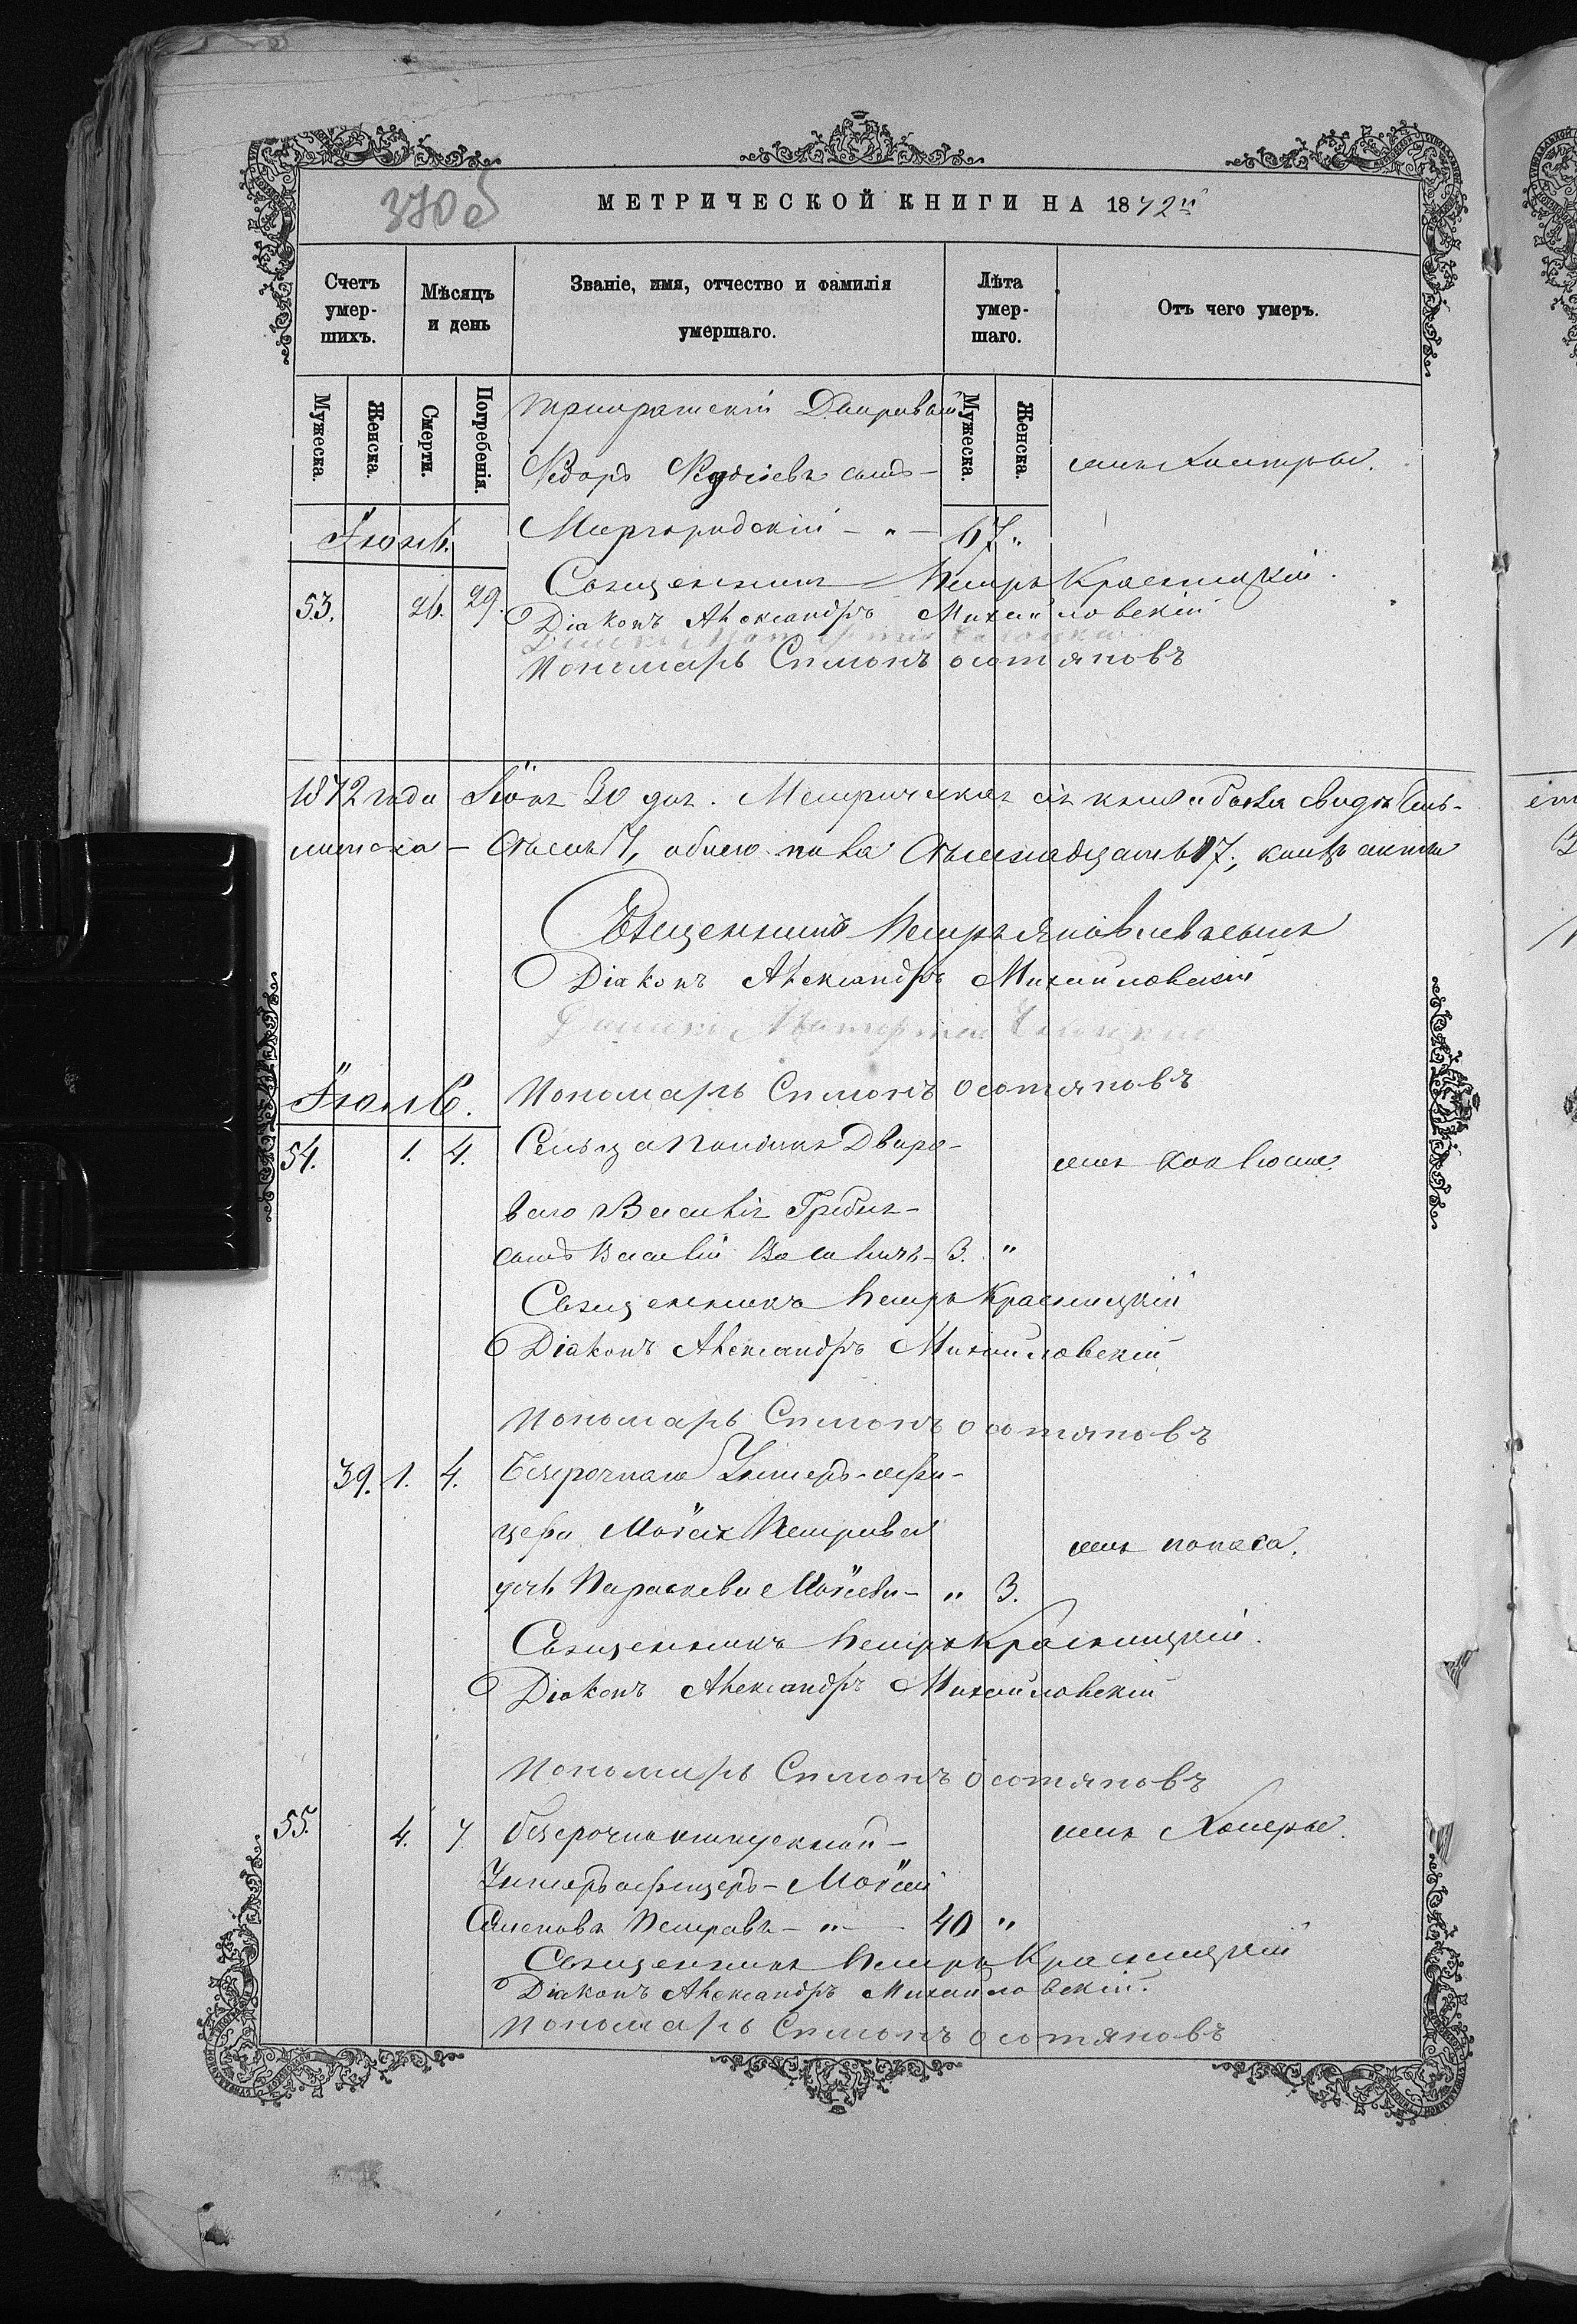 370 об
МЕТРИЧЕСКОЙ КНИГИ НА 1872й
Счетъ умер-шихъ.
Мѣсяцъ и день
Званіе, имя, отчество и фамилія умершаго.
Лѣта умер-шаго.
Отъ чего умеръ.
Мужеска. Женска. Смерти. Погребенія. Мужеска. Женска.
Дворовый
Ѳедоръ сынъ отъ холеры.
Іюнь. Миргородскій 67.
53. 26. 29. Священникъ Петръ Красницкій.
Діаконъ Александръ Михайловскій
Пономарь Симонъ Остяновъ
1872 года Іюня 30 дня. Метрическая сія книга была свидѣтель-
обоего пола
Священникъ Петръ
Діаконъ Александръ Михайловскій
Пономарь Симонъ Остяновъ
Іюль.
54. 1. 4. Сельца Дворо- отъ коклюша.
ваго Василія
сынъ Василій 3. "
Священникъ Петръ Красницкій
Діаконъ Александръ Михайловскій
Пономарь Симонъ Остяновъ
39. 1. 4. Безсрочнаго Унтеръ-офи-
цера Моѵсея Петрова отъ поноса.
дочь Параскева Моѵсеева - " 3.
Священникъ Петръ Красницкій.
Діаконъ Александръ Михайловскій
Пономарь Симонъ Остяновъ
55. 4. 7 безсрочноотпускной - отъ Холеры.
Унтеръ офицеръ - Моѵсей
Семеновъ Петровъ - " - 40 "
Священникъ Петръ Красницкій
Діаконъ Александръ Михайловскій.
Пономарь Симонъ Остяновъ